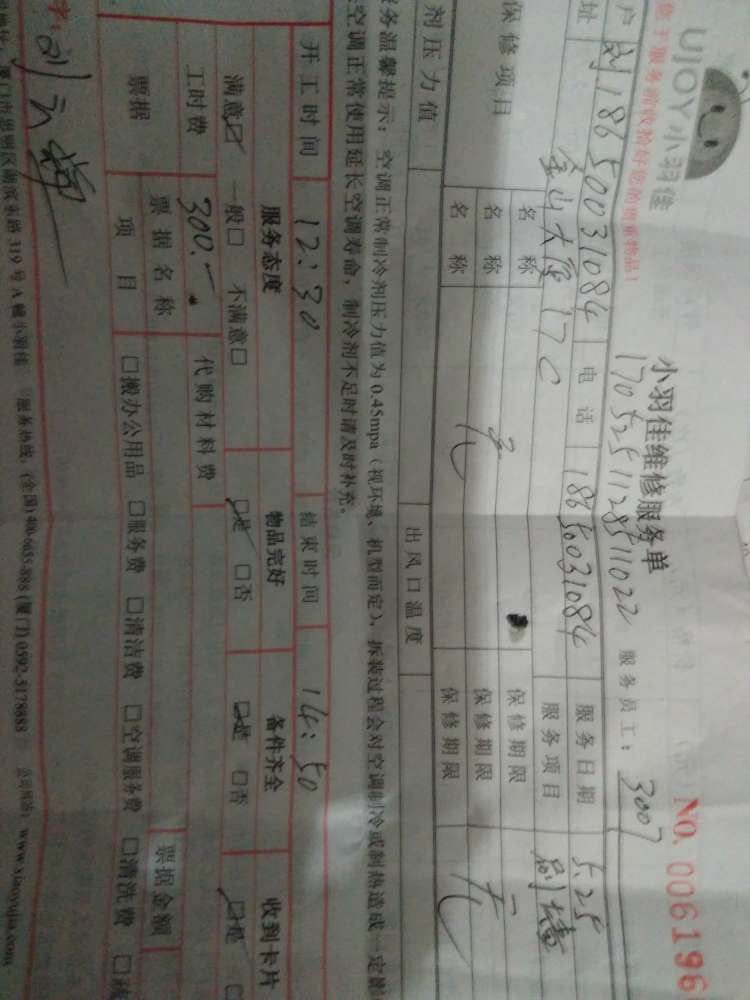 UJOY小羽佳
小羽佳维修服务单
No. 006196
1705251128511022 服务员工: 3007
户 刘18650031084 电话 18650031084 服务日期 5.25
址 金山大厦17C 服务项目 刷墙
保修项目 名称 保修期限
名称 无 保修期限
名称 保修期限 无
剂压力值 出风口温度
务温馨提示:空调正常制冷剂压力值为0.45mpa(视环境、机型而定),拆装过程会对空调制冷或制热造成一定
空调正常使用延长空调寿命,制冷剂不足时请及时补充。
开工时间 12:30 结束时间 14:50
服务态度 物品完好 备件齐全 收到卡片
满意☑ 一般□ 不满意□ ☑是 □否 ☑是 □否 ☑是
工时费 300.- 代购材料费
票据 票据名称 票据金额
项目 □搬办公用品 □服务费 □清洁费 □空调服务费 □清洗费
字:
厦门市思明区湖滨东路319号A幢小羽佳 服务热线:(全国)400-6655-888 (厦门)0592-5178888 公司网站:www.xiaoyujia.com